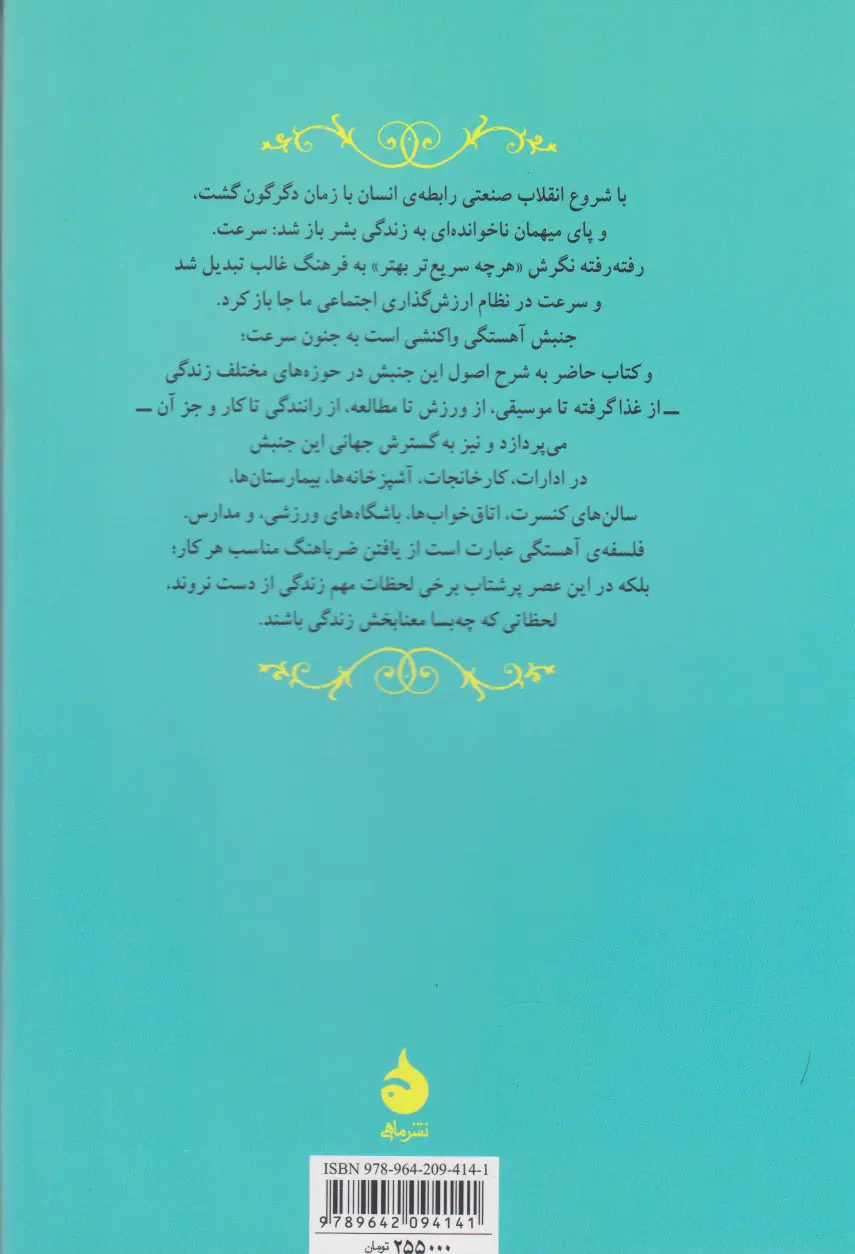 با شروع انقلاب صنعتی رابطه‌ی انسان با زمان دگرگون گشت،
و پای میهمان ناخوانده‌ای به زندگی بشر باز شد: سرعت.
رفته‌رفته نگرش «هرچه سریع‌تر بهتر» به فرهنگ غالب تبدیل شد
و سرعت در نظام ارزش‌گذاری اجتماعی ما جا باز کرد.
جنبش آهستگی واکنشی است به جنون سرعت؛
و کتاب حاضر به شرح اصول این جنبش در حوزه‌های مختلف زندگی
ــ از غذا گرفته تا موسیقی، از ورزش تا مطالعه، از رانندگی تا کار و جز آن ــ
می‌پردازد و نیز به گسترش جهانی این جنبش
در ادارات، کارخانجات، آشپزخانه‌ها، بیمارستان‌ها،
سالن‌های کنسرت، اتاق‌خواب‌ها، باشگاه‌های ورزشی، و مدارس.
فلسفه‌ی آهستگی عبارت است از یافتن ضرباهنگ مناسب هر کار؛
بلکه در این عصر پرشتاب برخی لحظات مهم زندگی از دست نروند،
لحظاتی که چه‌بسا معنابخش زندگی باشند.
نشر ماهی
ISBN 978-964-209-414-1
9 789642 094141
۲۵۵۰۰۰ تومان